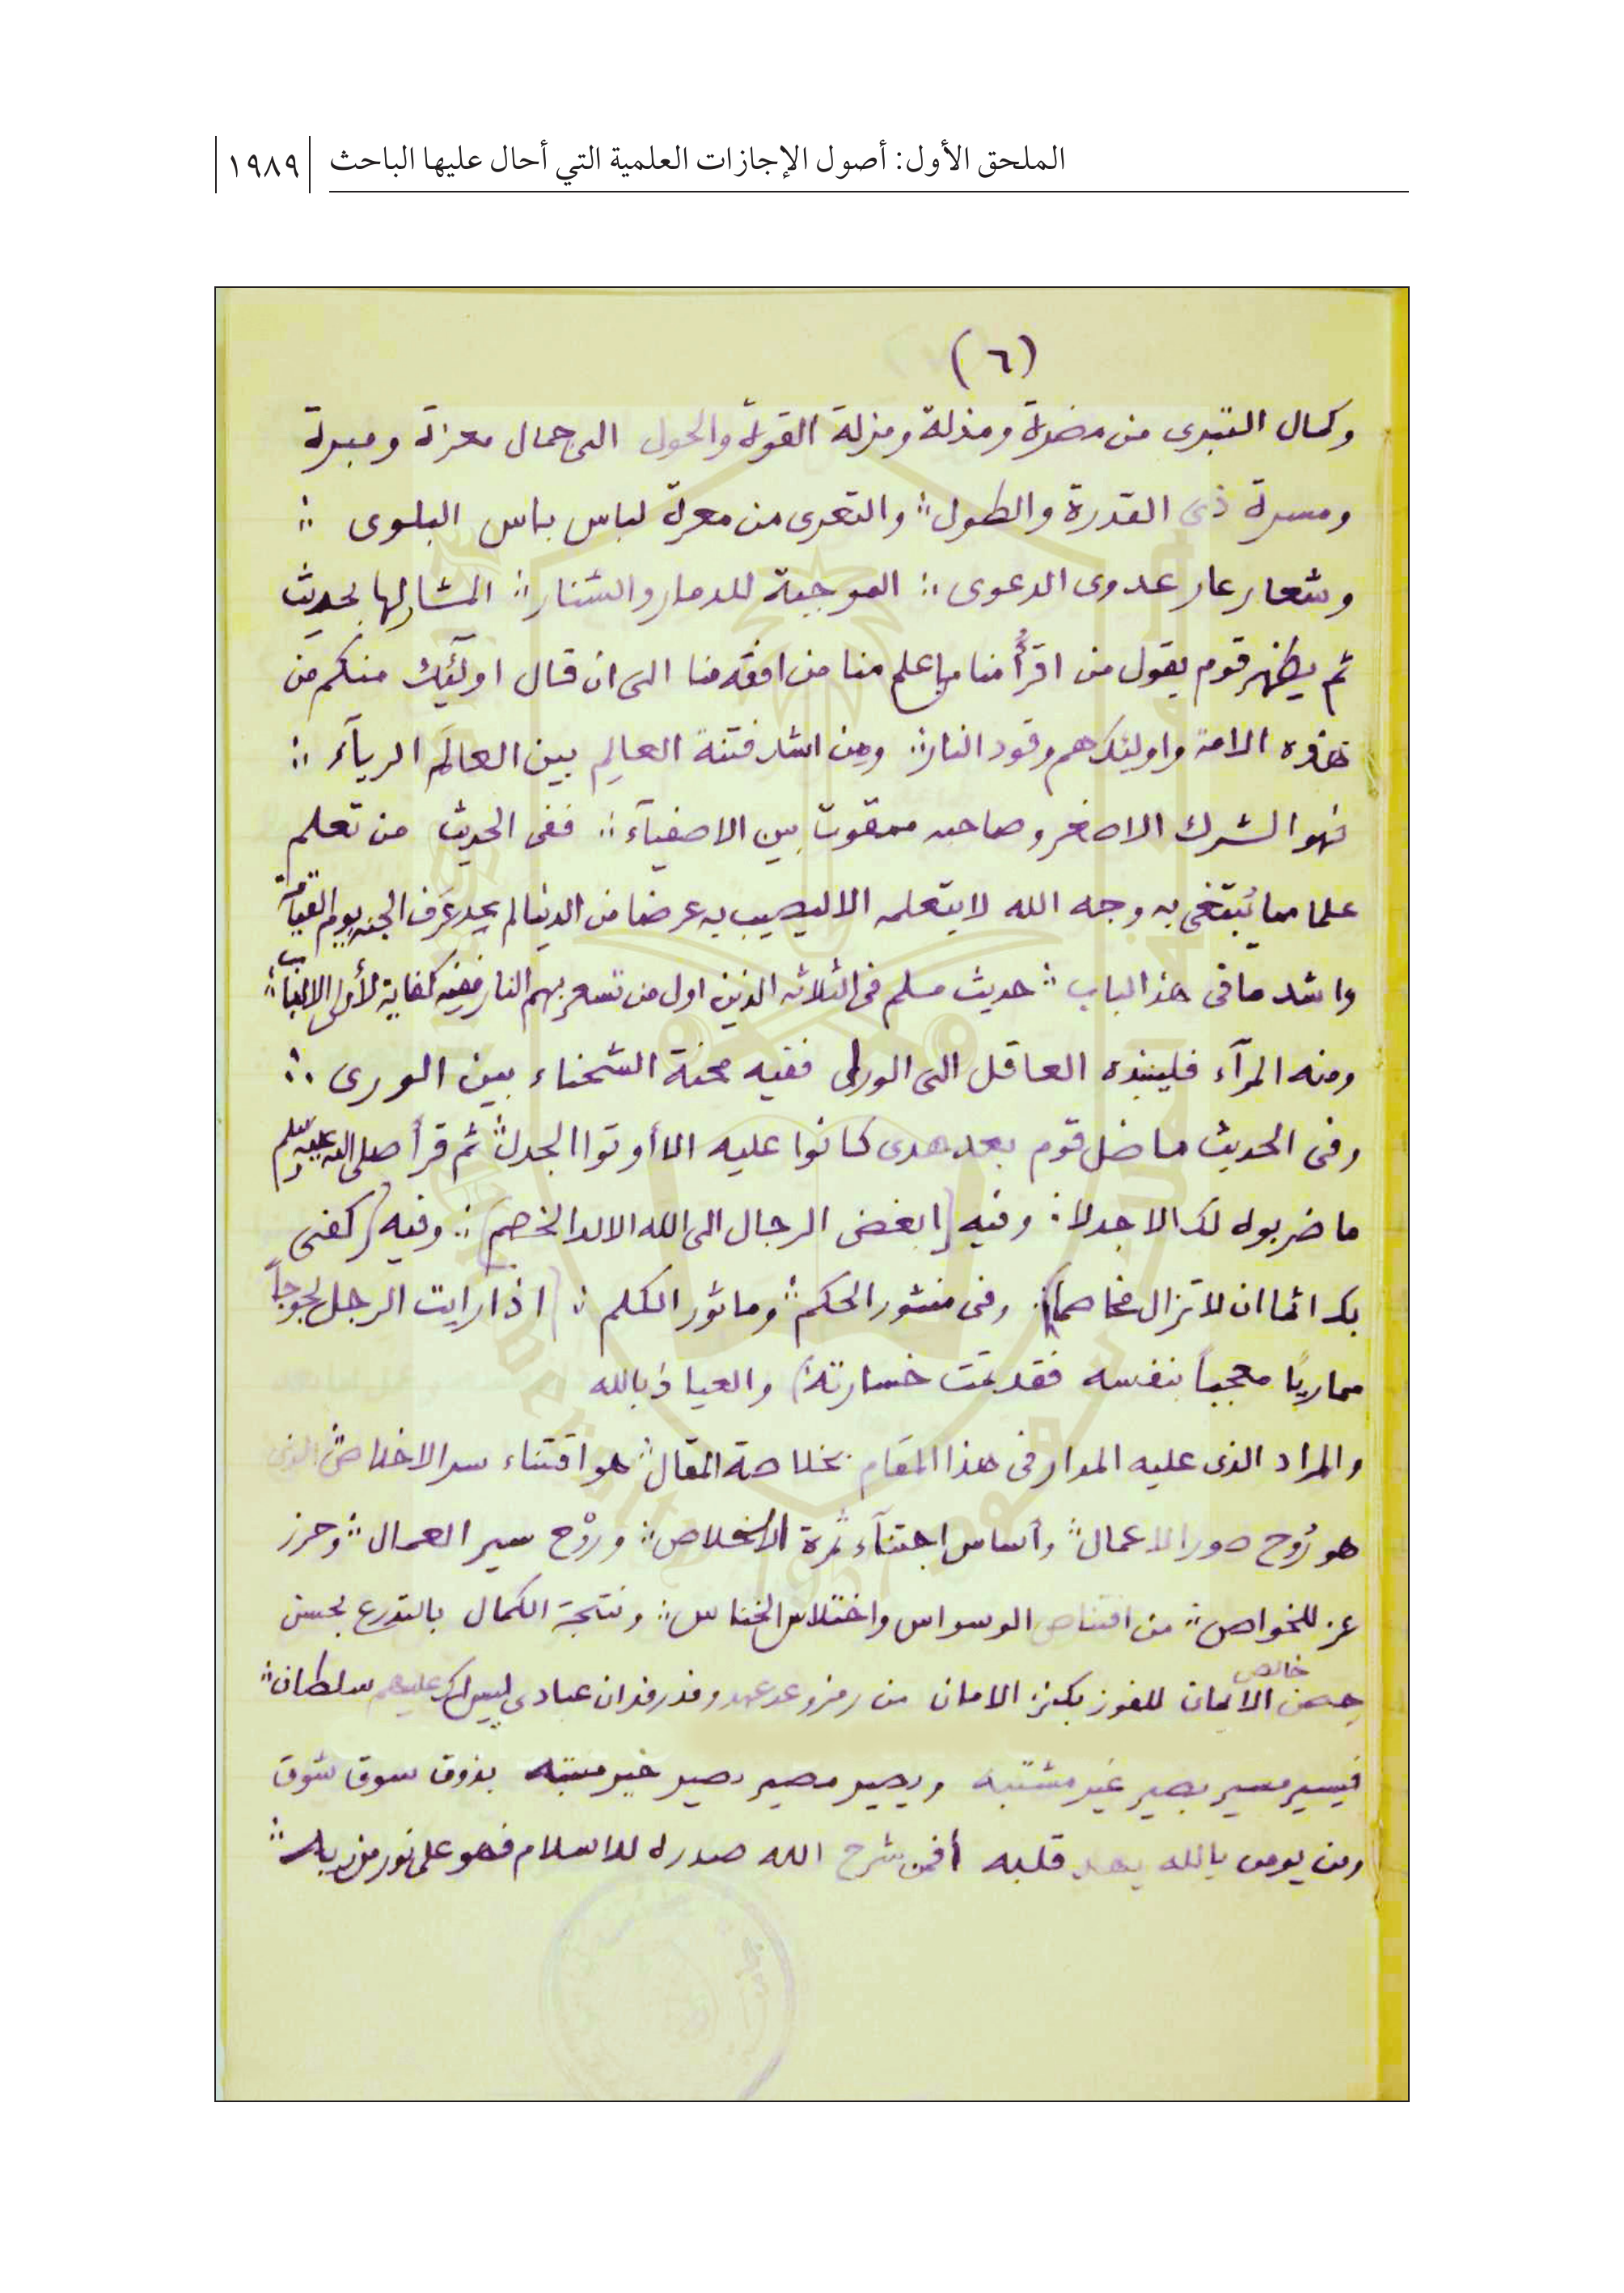 الملحق الأول: أصول الإجازات العلمية التي أحال عليها الباحث | ١٩٨٩
(٦)
وكمال التبرى من مضرة ومذلة ومزلة القوة والحول الى جمال معزة ومبرة
ومسرة ذى القدرة والطول ؞ والتعرى من معرة لباس باس البلوى ؞
وشعار عار عدوى الدعوى ؞ الموجبة للدمار والشنار ؞ المشار لها بحديث
ثم يظهر قوم يقول من اقرأ منا من اعلم منا من افقه منا الى ان قال اولئك منكم من
هذه الامة واولئك هم وقود النار ؞ ومن اشد فتنة العالِم بين العالَم الريآء ؞
فهو الشرك الاصغر وصاحبه ممقوت بين الاصفيآء ؞ ففى الحديث من تعلم
علما مما يُبتغى به وجه الله لا يتعلمه الا ليصيب به عرضا من الدنيا لم يجد عَرف الجنه يوم القيامة
واشد ما فى هذ الباب ؞ حديث مسلم فى الثلاثه الذين اول من تسعر بهم النار ففيه كفاية لأولى الالباب ؞
ومنه المرآء فلينبذه العاقل الى الورا ففيه محنة الشحناء بين الورى ؞
وفى الحديث ما ضل قوم بعد هدى كانوا عليه الا أوتوا الجدل ؞ ثم قرأ صلى الله عليه وسلم
ما ضربوه لك الا جدلا ؞ وفيه (ابغض الرجال الى الله الالد الخصم) ؞ وفيه (كفى
بك اثما ان لا تزال مخاصما) ؞ وفى منثور الحكم ؞ وماثور الكلم ؞ (اذا رايت الرجل لجوجاً
مماريًا معجباً بنفسه فقد تمت خسارته) والعياذ بالله
والمراد الذى عليه المدار فى هذا المقام بخلاصة المقال ؞ هو اقتناء سر الاخلاص ؞ الذى
هو رُوح صور الاعمال ؞ وأساس اجتنآء ثمرة الاخلاص ؞ ورَوْح سير العمال ؞ وحرز
عز للخواص ؞ من اقتناص الوسواس واختلاس الخناس ؞ ونتجة الكمال بالتدرع بحسن
حصن خالص الايمان للفوز بكنز الامان من رمز وعد عهد ان عبادى ليس لك عليهم سلطان ؞
فيسير مسير بصير غير مشتبه ويصير مصير خبير منتبه بذوق سوق شوق
ومن يومن بالله يهد قلبه أفمن شرح الله صدره للاسلام فهو على نور من ربه ؞